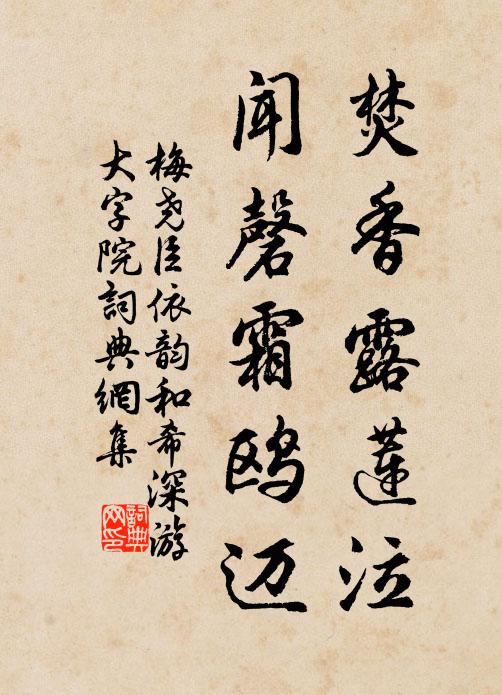 焚香露莲泣
闻磬霜鸥迈
梅尧臣依韵和希深游
大字院詞典網集
詞典网印